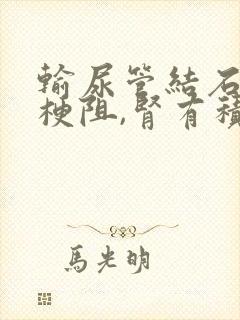 輸尿管結石
梗阻,腎有積
馬光明